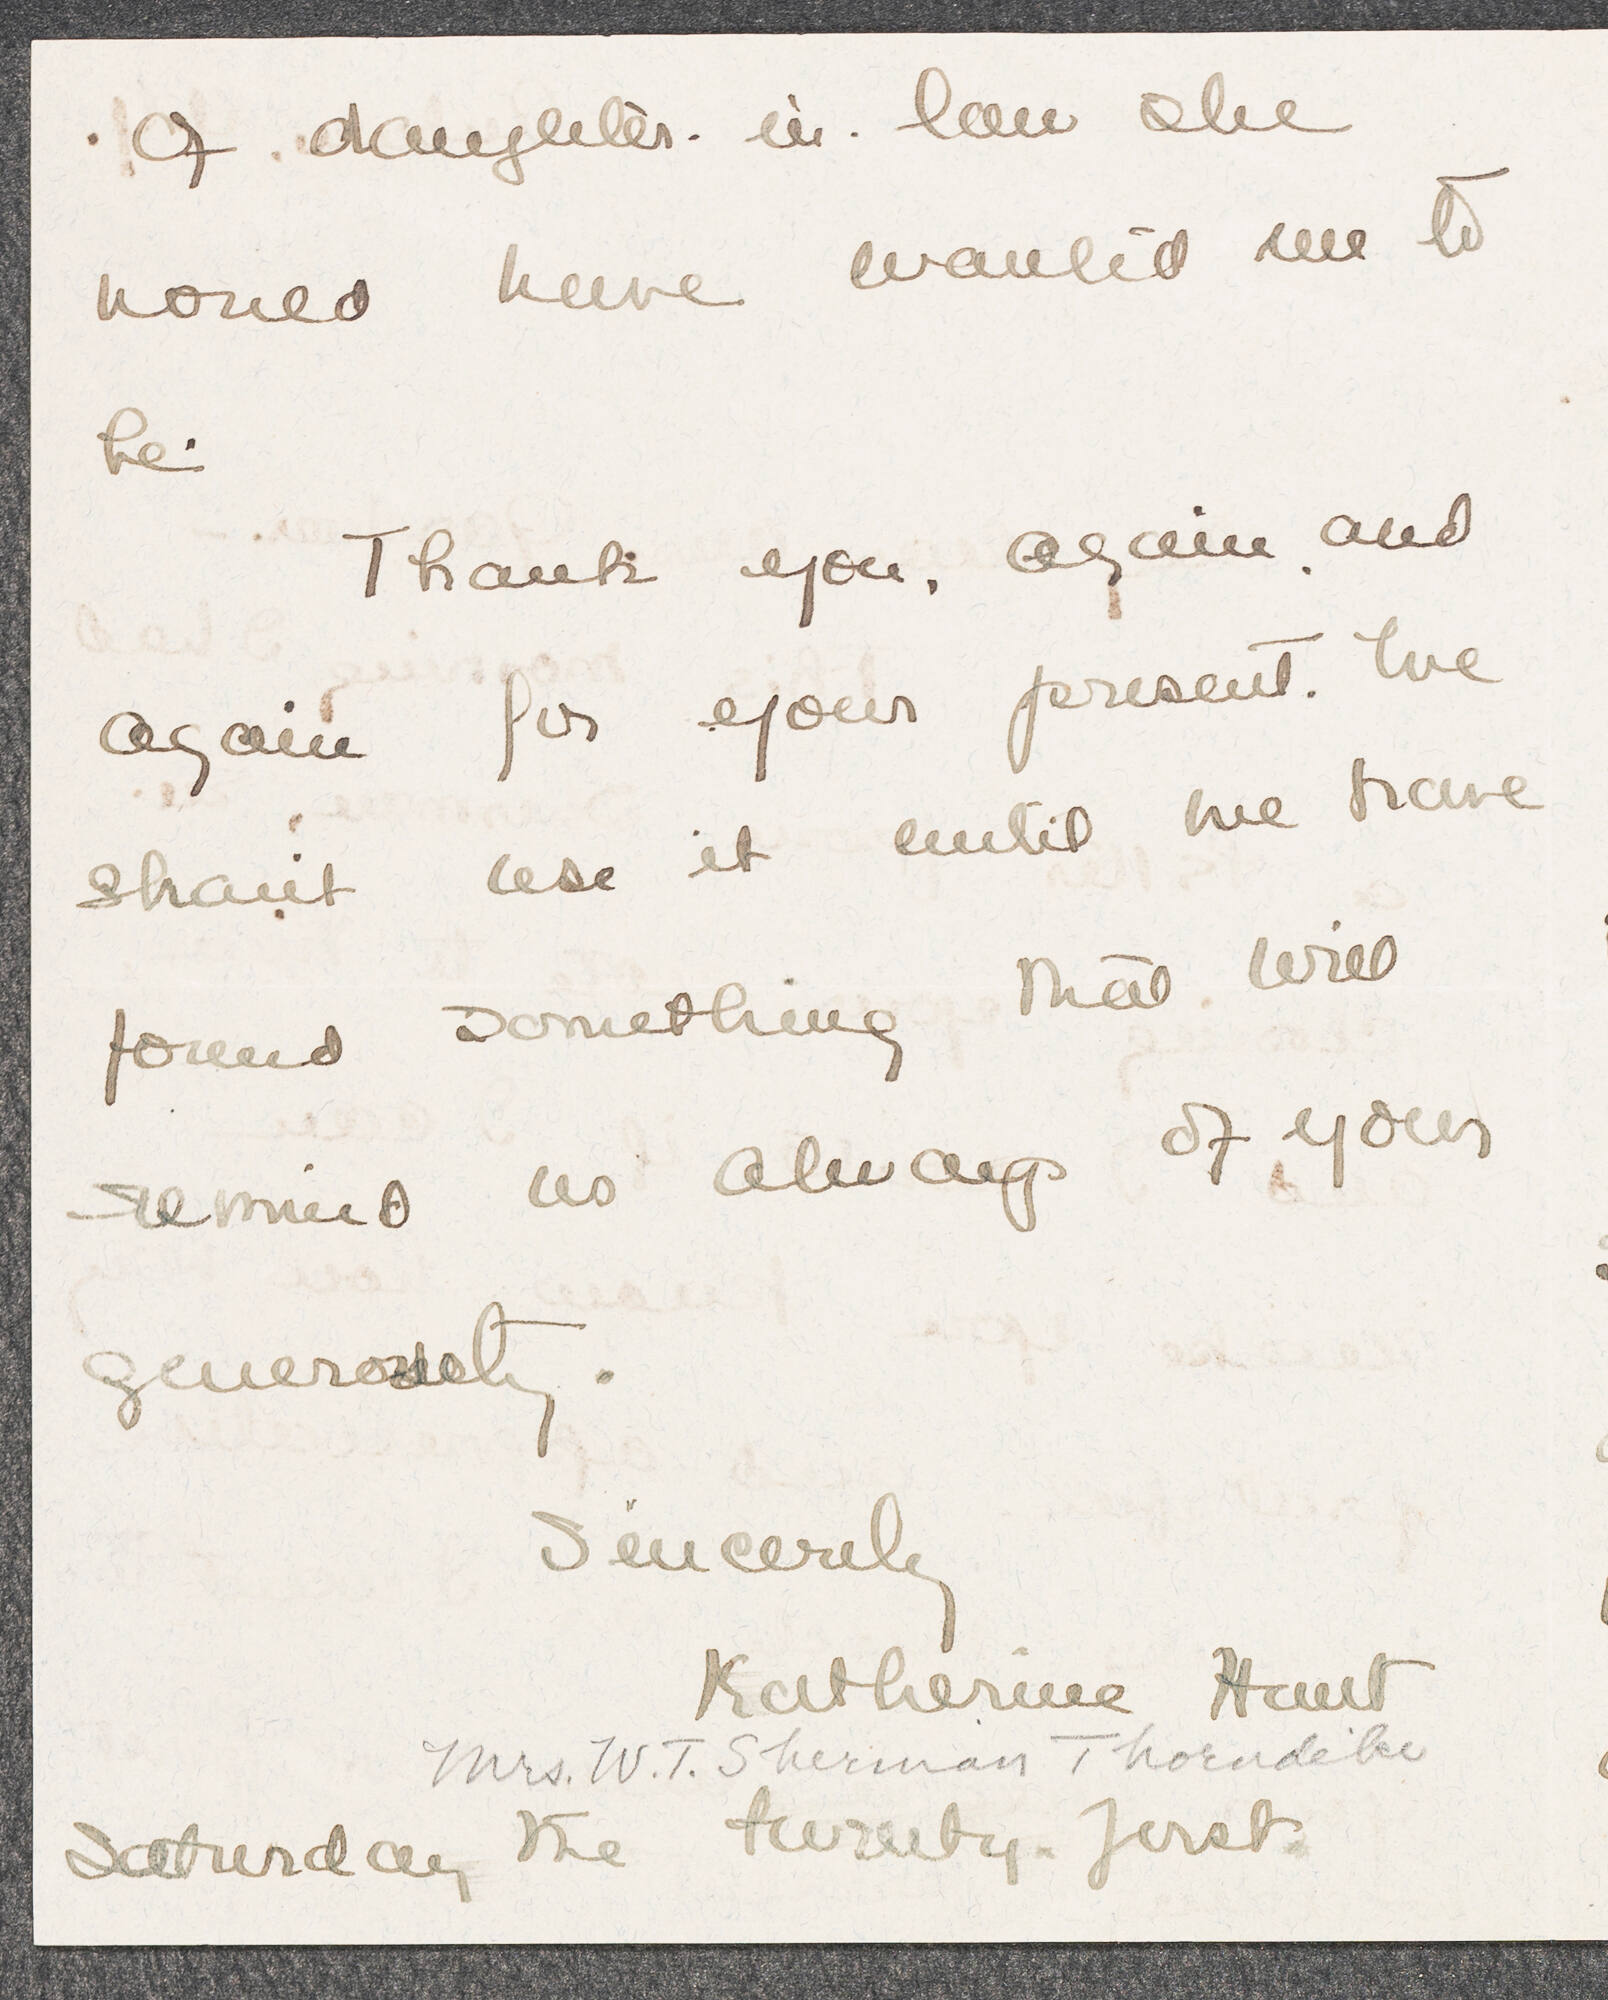 of daughter-in-law she
would have wanted me to
be.
Thank you, again, and
again for your present. We
shan't use it until we have
found something that will
remind us always of your
generosity.
Sincerely
Katherine Hunt
Mrs. W. T. Sherman Thorndike
Saturday the twenty-first.